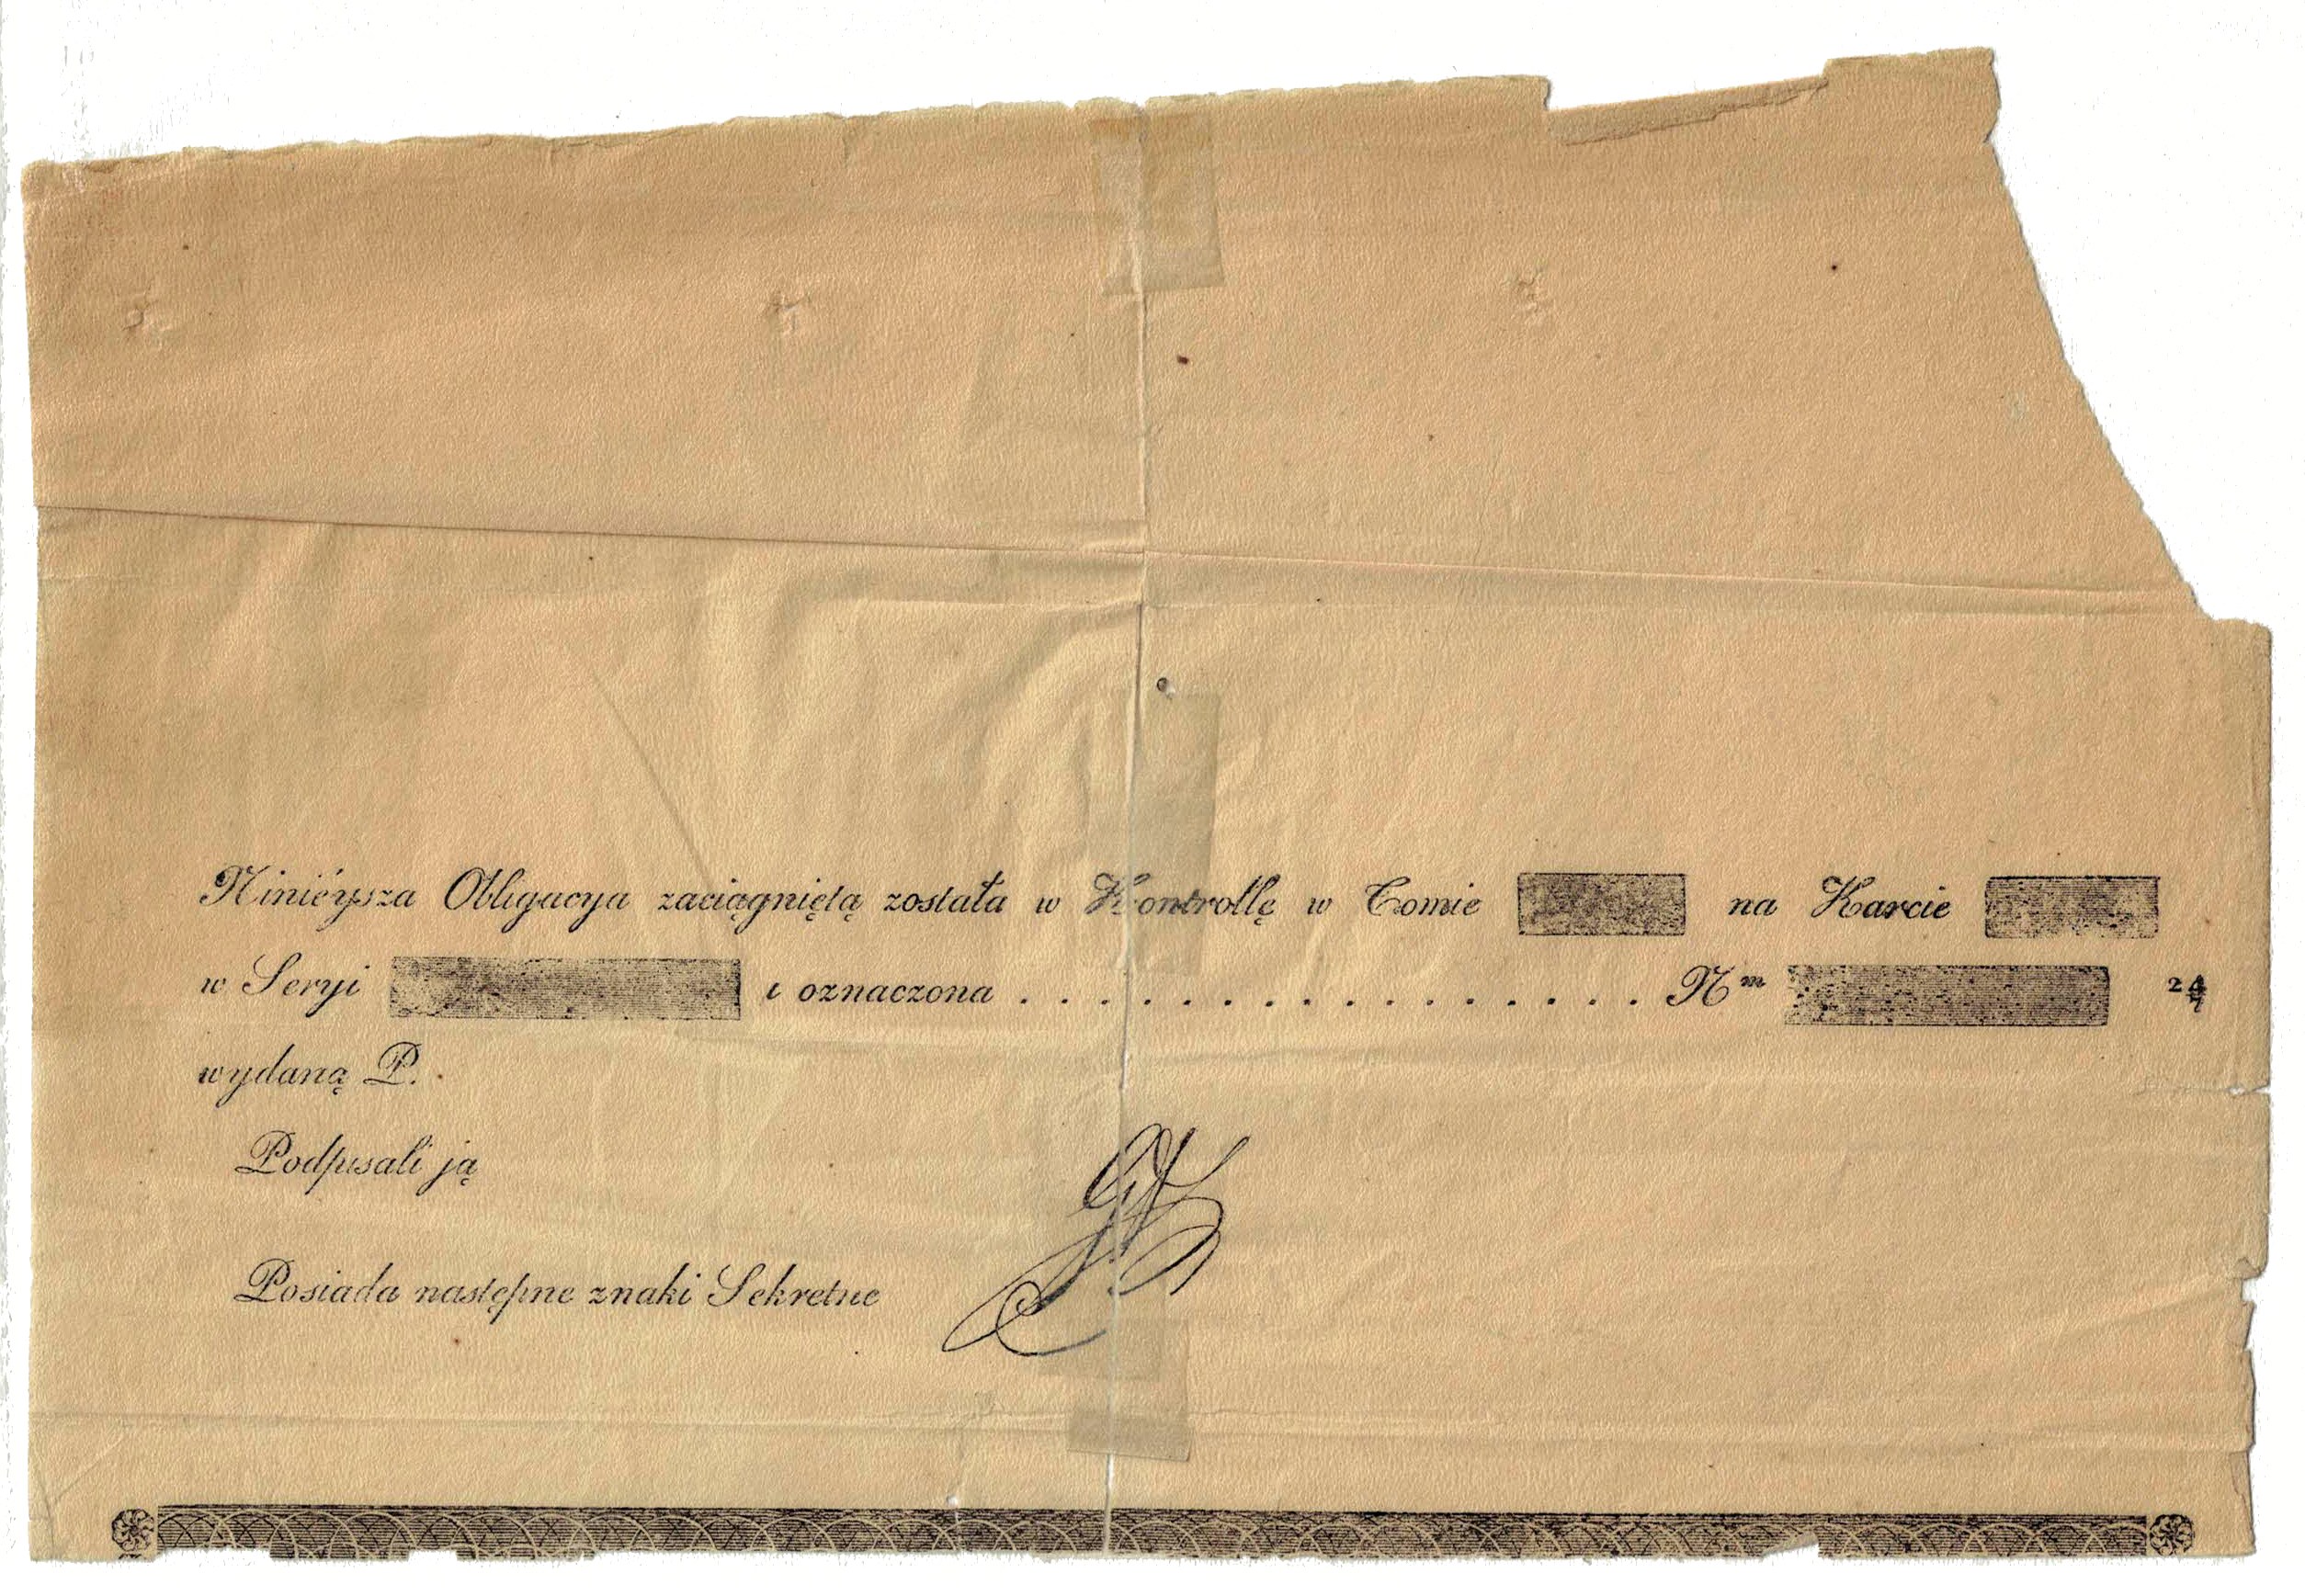 Ninièysza Obligacya zaciągniętą została w Kontrollę w Tomie na Karcie
w Seryi i oznaczona . . . . . . . . . . . . . . . . Nᵐ
wydaną P.
Podpisali ją
Posiada następne znaki Sekretne